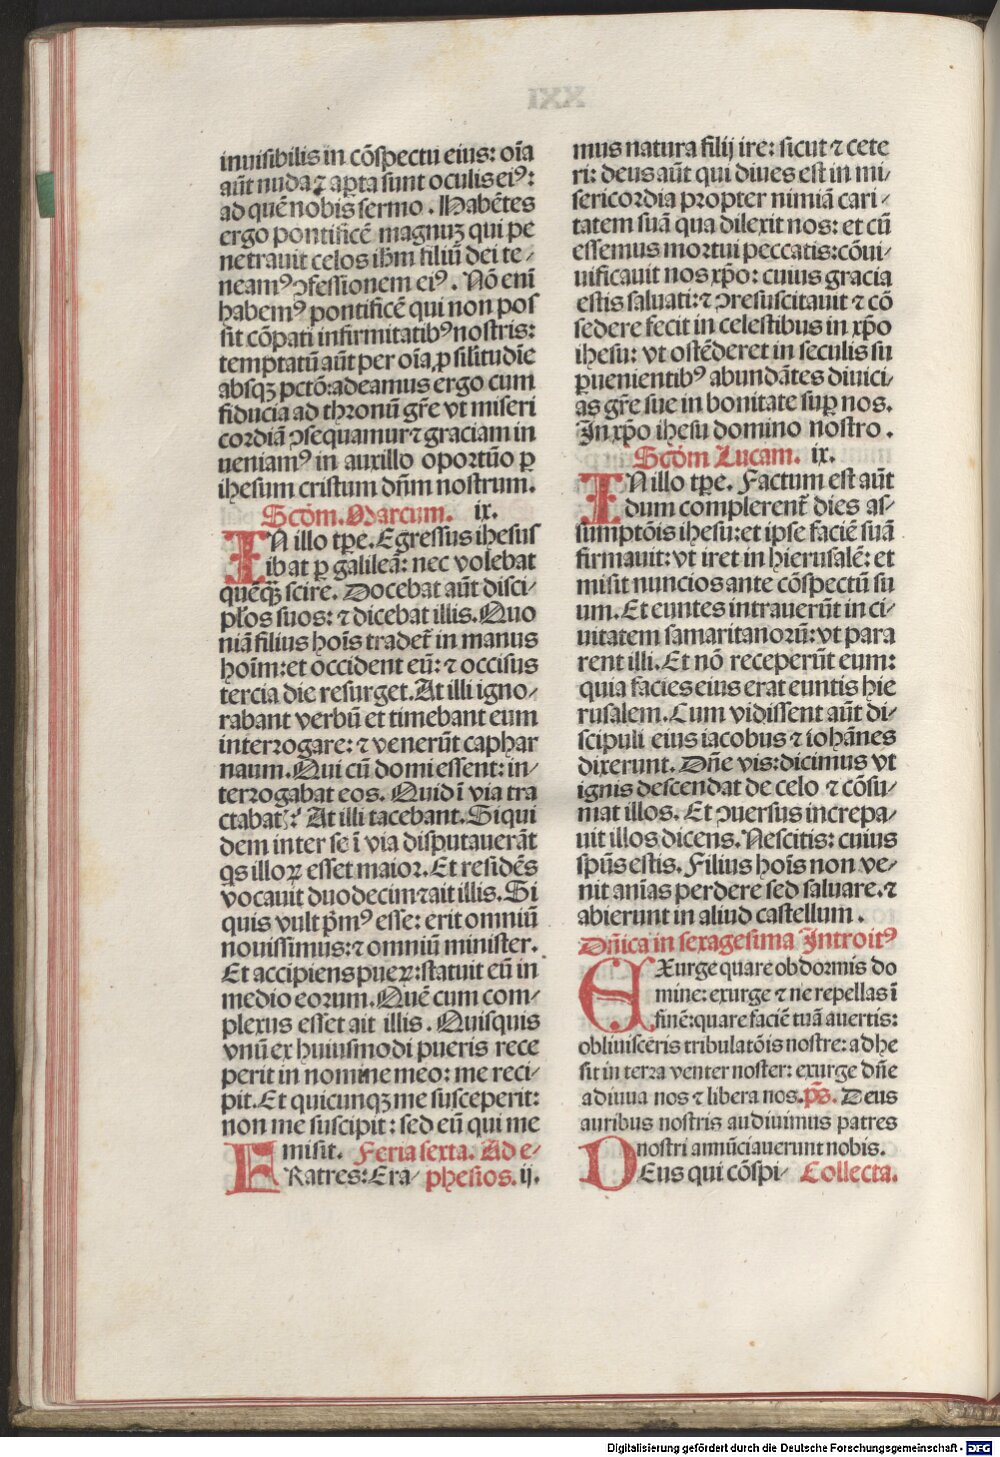 inuisibilis in cōspectu eius: oīa
aūt nuda ⁊ aꝑta sunt oculis eiꝰ:
ad quē nobis sermo . Habētes
ergo pontificē magnuꝫ qui pe
netrauit celos ihm̄ filiū dei te⸗
neamꝰ ↄfessionem eiꝰ . Nō enī
habemꝰ pontificē qui non pos
sit cōpati infirmitatibꝰ nostris:
temptatū aūt per oīa, ꝓ silitudīe
absqꝫ pctō: adeamus ergo cum
fiducia ad thronū gr̄e vt miseri
cordiā ↄsequamur ⁊ graciam in
ueniamꝰ in auxilio oportūo ꝑ
ihesum cristum dn̄m nostrum.
Scd̄m. Marcum. ix.
IN illo tꝑe. Egressus ihesus
ibat ꝑ galileā: nec volebat
quēqꝫ scire. Docebat aūt disci⸗
pl̄os suos: ⁊ dicebat illis. Quo
niā filius hoīs tradet̄ in manus
hoīm: et occident eū: ⁊ occisus
tercia die resurget. At illi igno⸗
rabant verbū et timebant eum
interrogare: ⁊ venerūt caphar
naum. Qui cū domi essent: in⸗
terrogabat eos. Quid ī via tra
ctabatꝭ? At illi tacebant. Siqui
dem inter se ī via disputauerāt
qs illoꝝ esset maior. Et residēs
vocauit duodecim ⁊ ait illis. Si
quis vult pm̄ꝰ esse: erit omniū
nouissimus: ⁊ omniū minister.
Et accipiens pueꝝ: statuit eū in
medio eorum. Quē cum com⸗
plexus esset ait illis . Quisquis
vnū ex huiusmodi pueris rece
perit in nomine meo: me reci⸗
pit. Et quicunqꝫ me susceperit:
non me suscipit: sed eū qui me
misit. Feria sexta. Ad e⸗
FRatres: Era⸗ phesios. ij.
XXI
mus natura filij ire: sicut ⁊ cete
ri: deus aūt qui diues est in mi⸗
sericordia propter nimiā cari⸗
tatem suā qua dilexit nos: et cū
essemus mortui peccatis: cōui⸗
uificauit nos xp̄o: cuius gracia
estis saluati: ⁊ ↄresuscitauit ⁊ cō
sedere fecit in celestibus in xp̄o
ihesu: vt ostēderet in seculis su
ꝑuenientibꝰ abundātes diuici⸗
as gr̄e sue in bonitate suꝑ nos.
In xp̄o ihesu domino nostro .
Scd̄m Lucam. ix.
IN illo tꝑe. Factum est aūt
dum complerent̄ dies as⸗
sumptōis ihesu: et ipse faciē suā
firmauit: vt iret in hierusalē: et
misit nuncios ante cōspectū su
um. Et euntes intrauerūt in ci⸗
uitatem samaritanorū: vt para
rent illi. Et nō receperūt eum:
quia facies eius erat euntis hie
rusalem. Cum vidissent aūt di⸗
scipuli eius iacobus ⁊ iohānes
dixerunt. Dn̄e vis: dicimus vt
ignis descendat de celo ⁊ cōsu⸗
mat illos. Et ↄuersus increpa⸗
uit illos, dicens. Nescitis: cuius
spūs estis. Filius hoīs non ve⸗
nit aīas perdere sed saluare. ⁊
abierunt in aliud castellum .
Dn̄ica in sexagesima Introitꝰ
EXurge quare obdormis do
mine: exurge ⁊ ne repellas ī
finē: quare faciē tuā auertis:
obliuisceris tribulatōis nostre: adhe
sit in terra venter noster: exurge dn̄e
adiuua nos ⁊ libera nos. ps̄. Deus
auribus nostris audiuimus patres
nostri annūciauerunt nobis.
DEus qui cōspi⸗ Collecta.
Digitalisierung gefördert durch die Deutsche Forschungsgemeinschaft - DFG